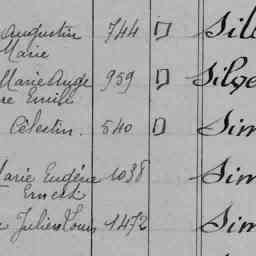 Augustin 744 Sil
Marie
Marie Ange 959 Silve
re Emile
Célestin. 540 Sim
Marie Eugène 1038 Sim
Ernest
Julien Louis 1472 Sim